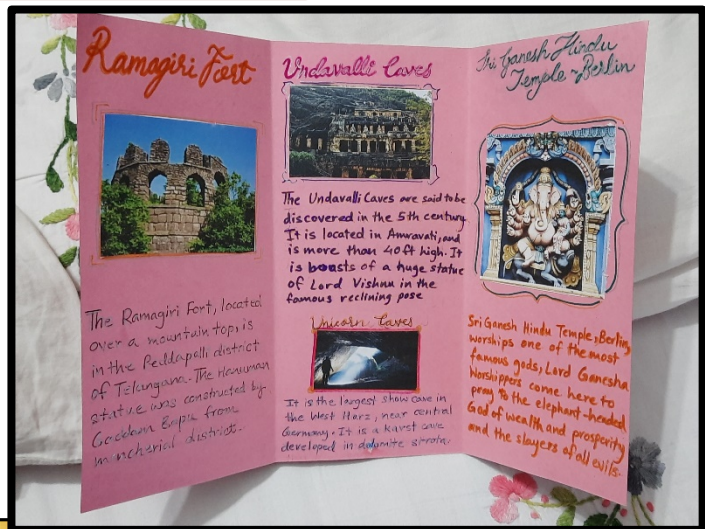 Ramagiri Fort
The Ramagiri Fort, located
over a mountain top, is
in the Peddapalli district
of Telangana. The Hanuman
statue was constructed by
Goddam Bapu from
mncherial district.
Undavalli Caves
The Undavalli Caves are said to be
discovered in the 5th century
It is located in Amravati, and
is more than 40ft high. It
is boasts of a huge statue
of Lord Vishnu in the
famous reclining pose
Unicorn Caves
It is the largest show cave in
the West Harz, near central
Germany. It is a karst cave
developed in dolomite
Sri Ganesh Hindu
Temple - Berlin
Sri Ganesh Hindu Temple, Berlin,
worships one of the most
famous gods, Lord Ganesha
Worshippers come here to
pray to the elephant-headed
God of wealth and prosperity
and the slayers of all evils.